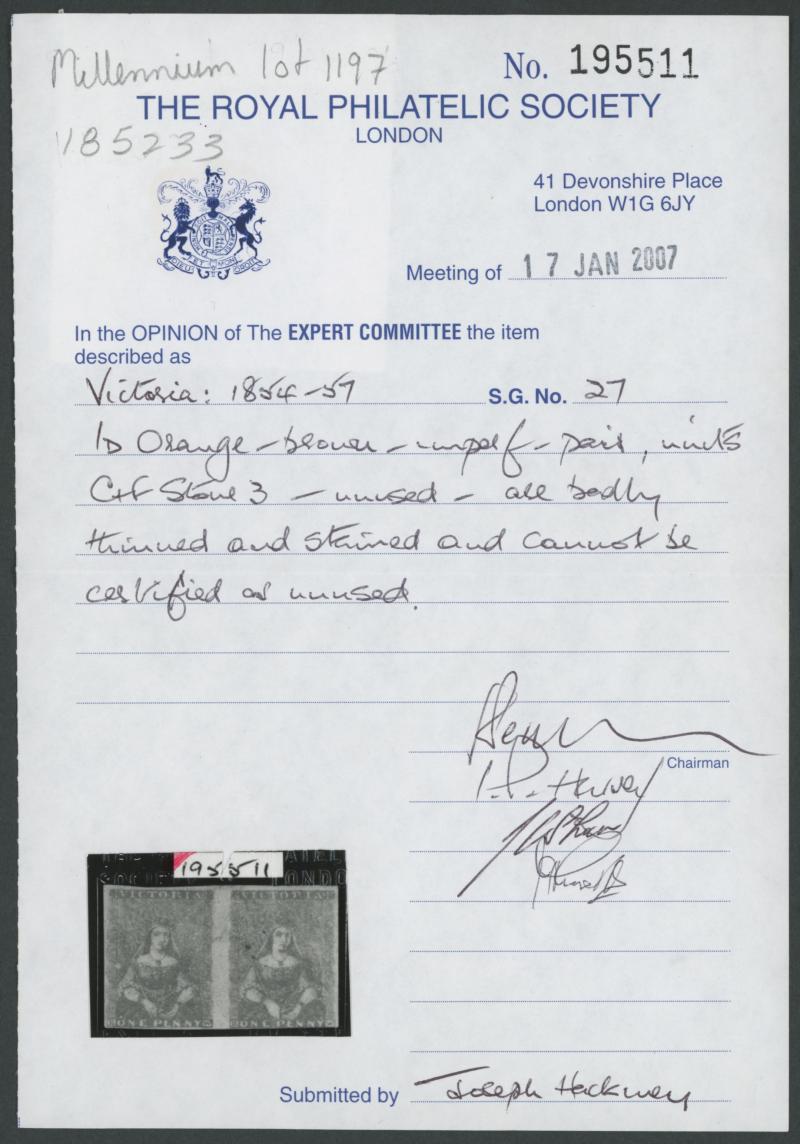 Millennium lot 1197
No. 195511
THE ROYAL PHILATELIC SOCIETY
LONDON
V85233
41 Devonshire Place
London W1G 6JY
Meeting of 17 JAN 2007
In the OPINION of The EXPERT COMMITTEE the item
described as
Victoria: 1854-57 S.G. No. 27
1D Orange-brown-imperf-pair, units
C+F Stone 3 - unused - are badly
thinned and stained and cannot be
certified as unused.
Chairman
195511
VICTORIA VICTORIA
ONE PENNY ONE PENNY
Submitted by Joseph Hackmey